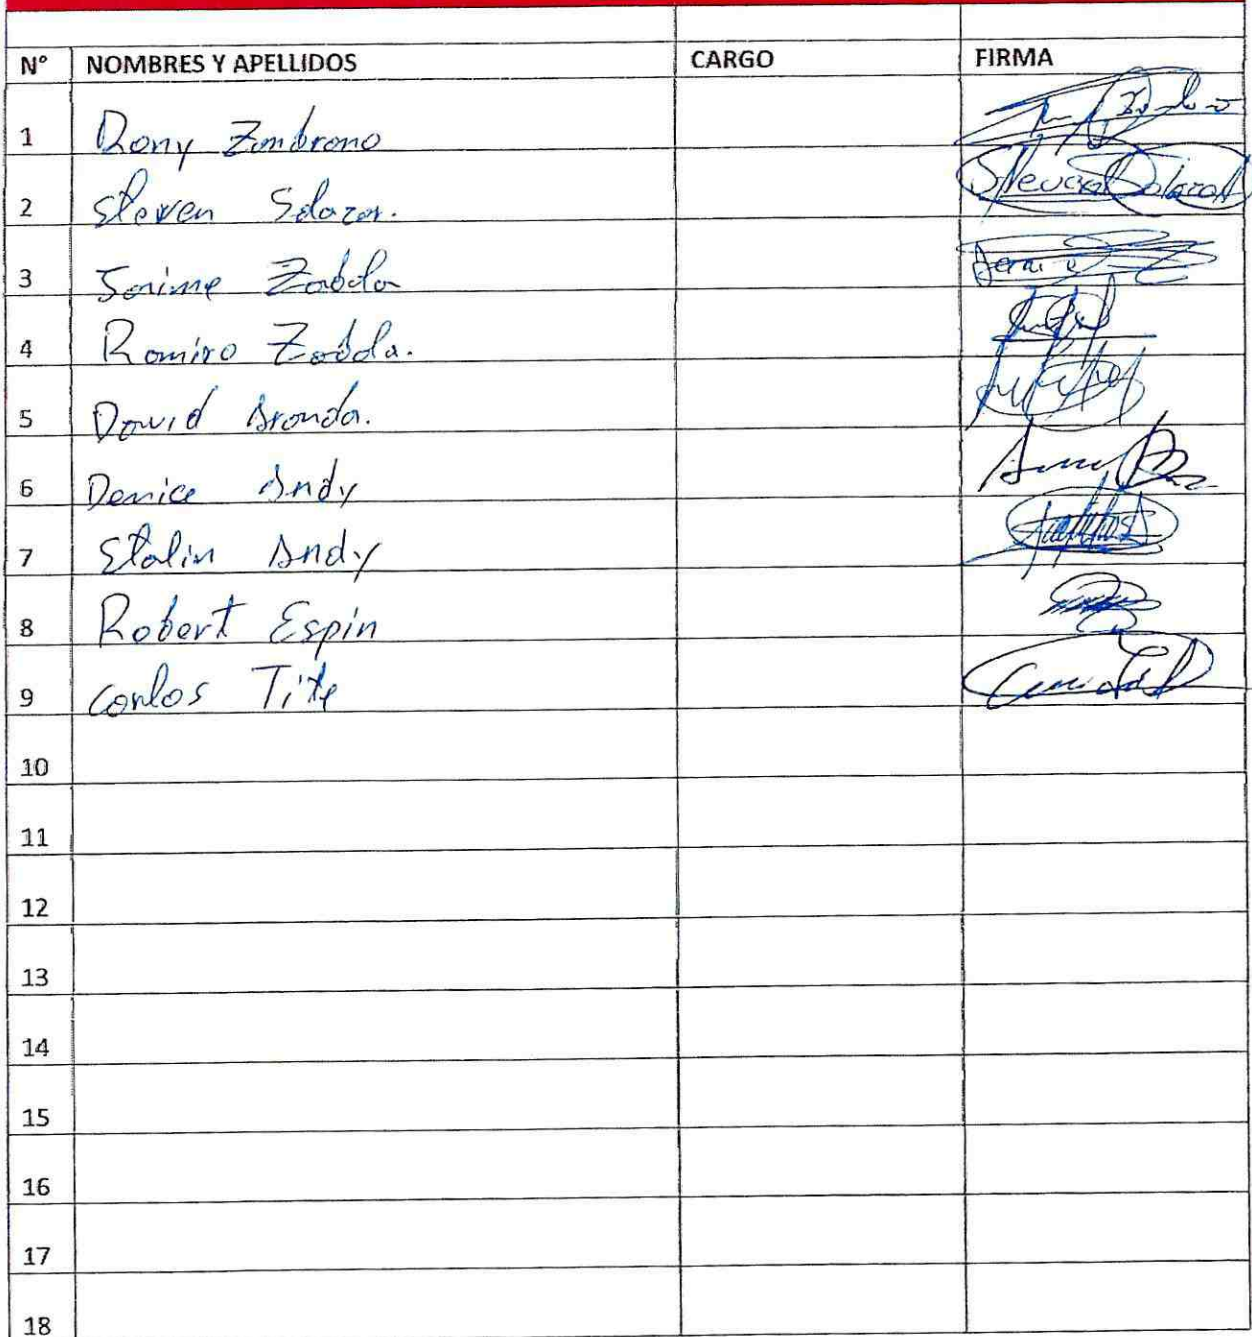 N° NOMBRES Y APELLIDOS CARGO FIRMA
1 Rony Zambrano
2 Steven Salazar. Steven Salazar
3 Jaime Zabala
4 Ramiro Zabala.
5 David Aranda.
6 Denice Andy
7 Stalin Andy
8 Robert Espin
9 Carlos Tite
10
11
12
13
14
15
16
17
18